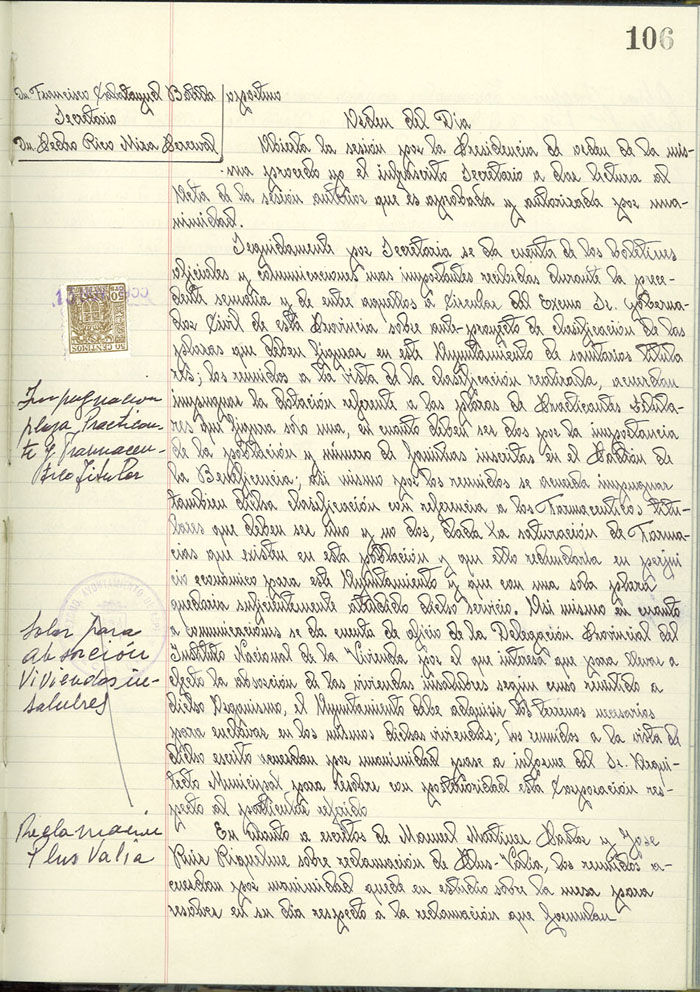 106
Dn Francisco Sabater
Secretario
Dn. Pedro Rico Mira Perceval
Orden del Dia
Abierta la sesión por la Presidencia de orden de la mis-
ma procedo yo el infrascrito Secretario a dar lectura al
Acta de la sesión anterior que es aprobada y autorizada por una-
nimidad.
Seguidamente por Secretaria se da cuenta de los boletines
oficiales y comunicaciones mas importantes recibidas durante la prece-
dente semana y de entre aquellos a Circular del Excmo Sr. Goberna-
dor Civil de esta Provincia sobre ante-proyecto de clasificación de las
plazas que deben figurar en este Ayuntamiento de sanitarios titula
res; los reunidos a la vista de la clasificación realizada, acuerdan
impugnar la dotación referente a las plazas de Practicantes titula-
res que figura solo una, en cuanto deben ser dos por la importancia
de la población y número de familias inscritas en el Padrón de
la Beneficencia; asi mismo por los reunidos se acuerda impugnar
tambien dicha clasificación con referencia a los Farmaceuticos titu-
lares que deben ser uno y no dos, dada la saturación de Farma-
cias que existen en esta población y que ello redundaria en perjui
cio económico para este Ayuntamiento y que con una sola plaza
quedaria suficientemente atendido dicho servicio. Asi mismo en cuanto
a comunicaciones se da cuenta de oficio de la Delegación Provincial del
Instituto Nacional de la Vivienda por el que interesa que para llevar a
efecto la absorción de las viviendas insalubres según censo remitido a
dicho Organismo, el Ayuntamiento debe adquirir los terrenos necesarios
para enclavar en los mismos dichas viviendas; los reunidos a la vista de
dicho escrito acuerdan por unanimidad pase a informe del Sr. Arqui-
tecto Municipal para resolver con posterioridad esta Corporación res-
pecto al particular referido
En cuanto a escritos de Manuel Martinez Pastor y Jose
Ruiz Riquelme sobre reclamación de Plus-Valia, los reunidos a-
cuerdan por unanimidad quede en estudio sobre la mesa para
resolver en su dia respecto a la reclamación que formulan
50 CENTIMOS
Impugnacion
plaza Practican-
te y Farmaceu-
tico Titular
Solar para
absorción
viviendas in-
salubres
Reclamación
Plus Valia